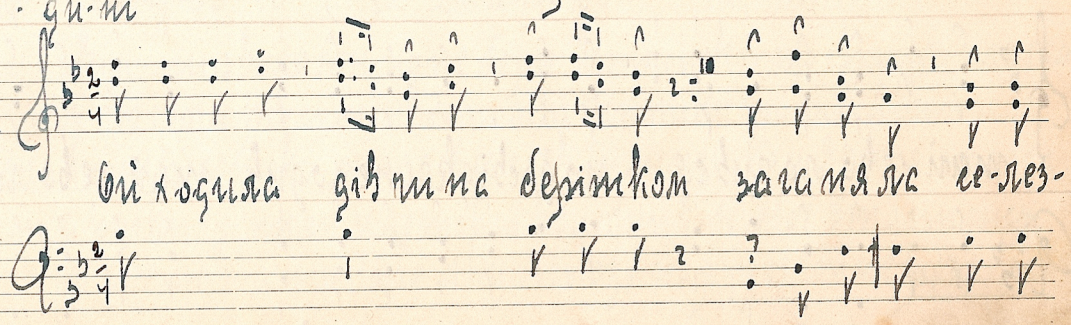 Ой ходила дівчина беріжком заганяла се-лез-